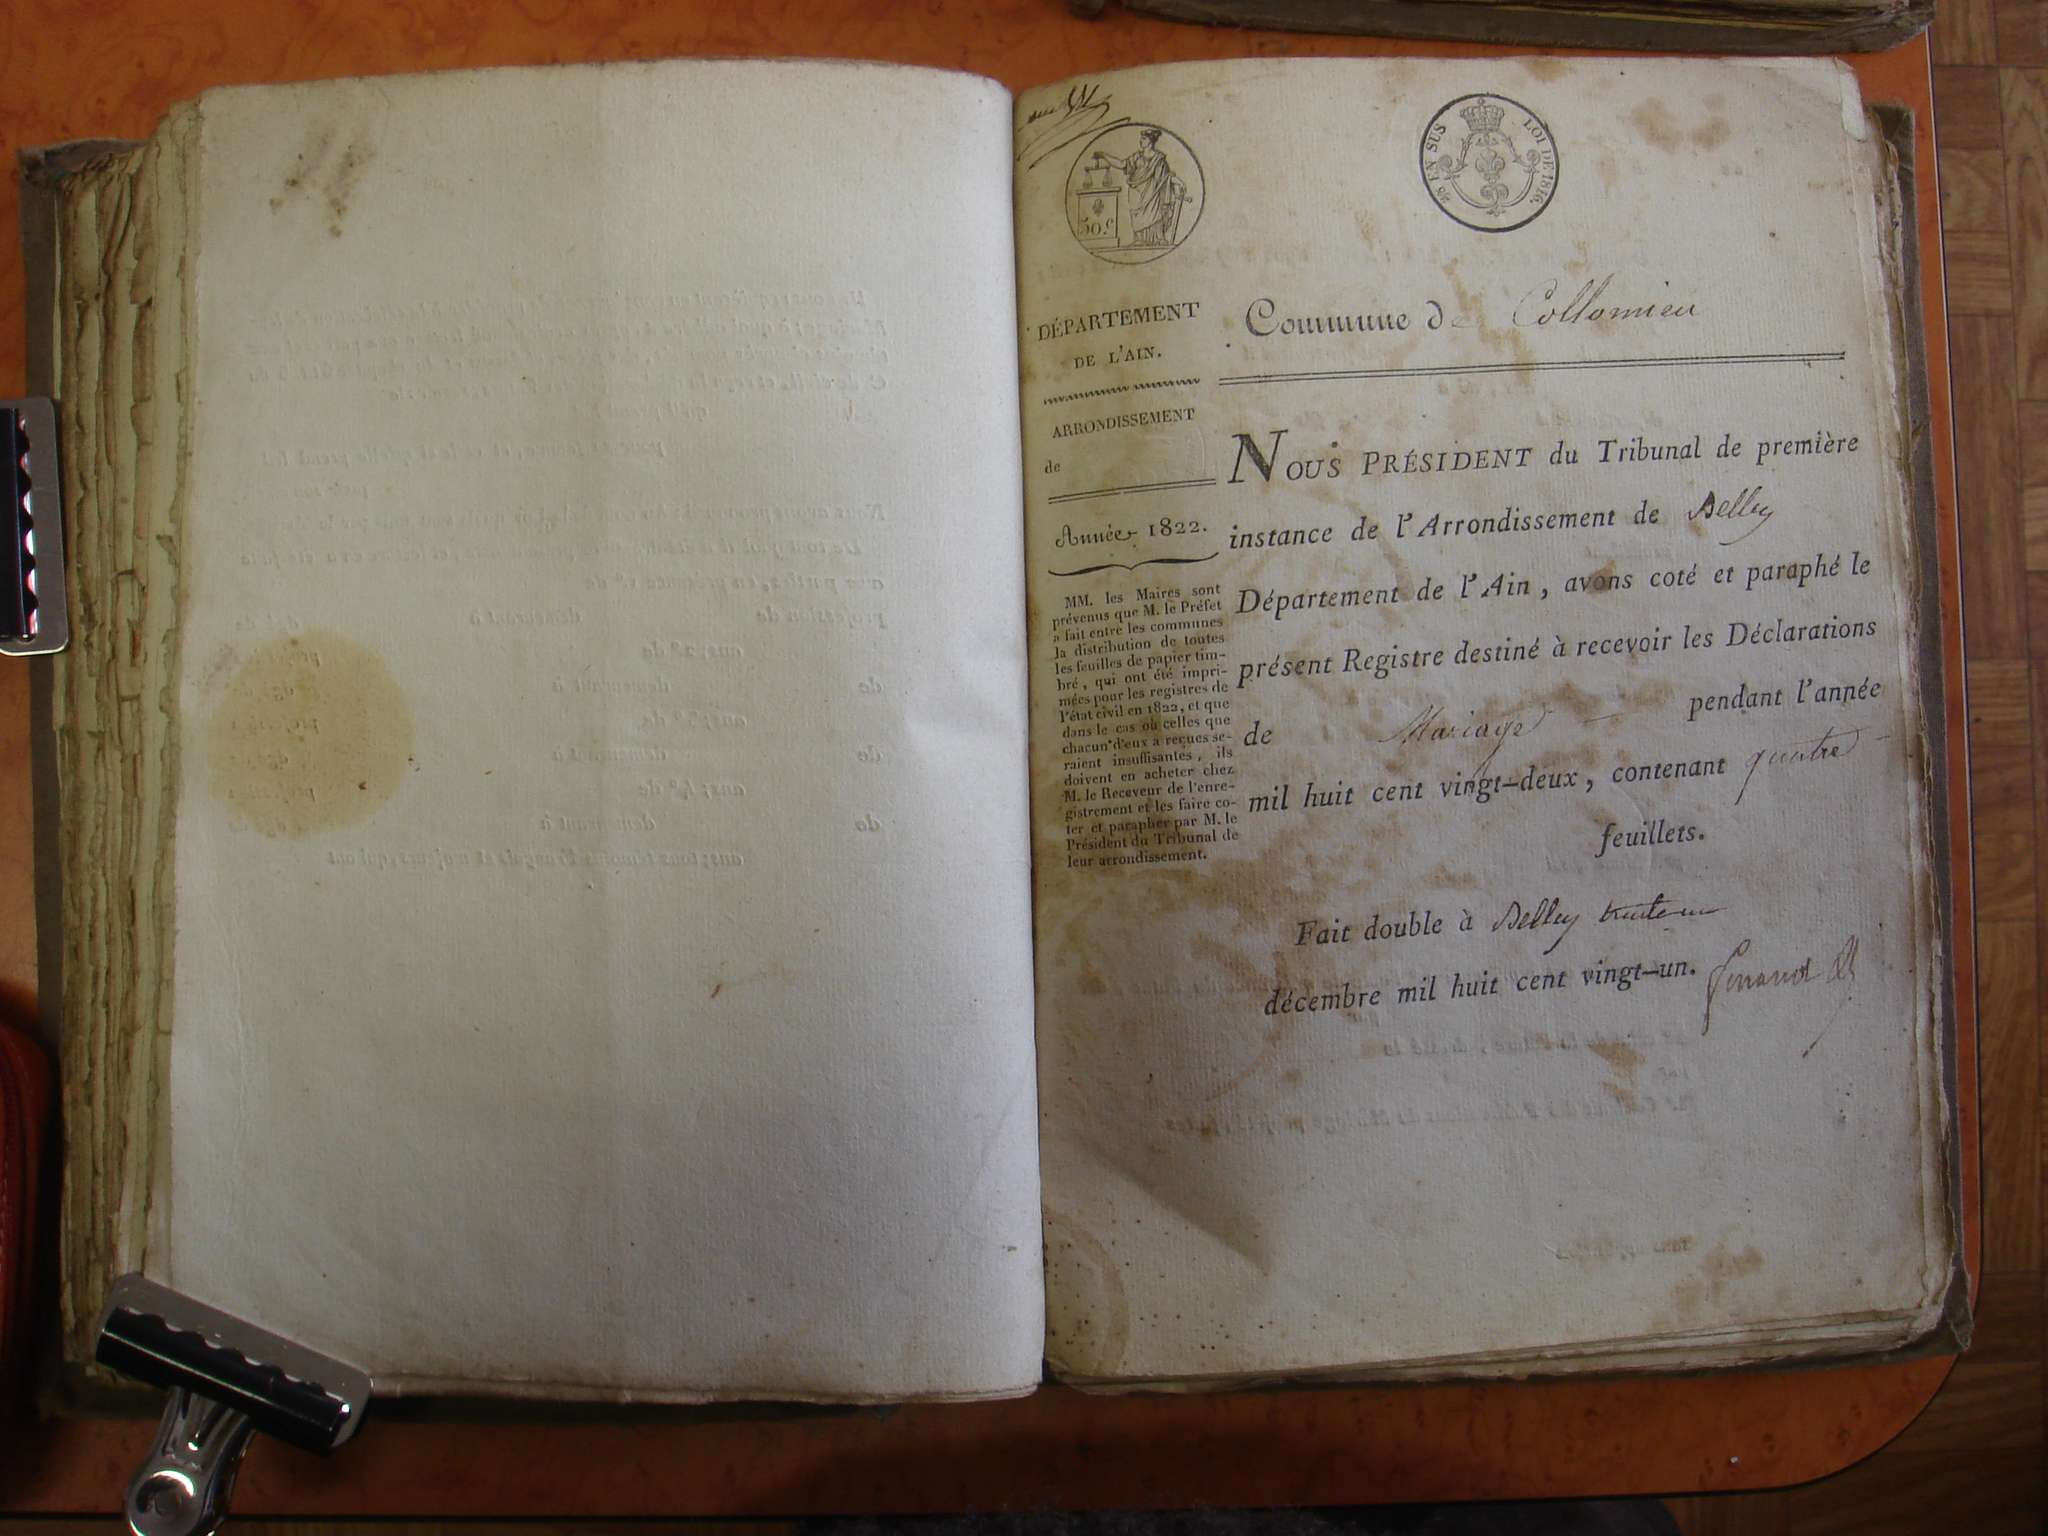 50.c
EN SUS LOI DE 1816.
DÉPARTEMENT
DE L'AIN.
ARRONDISSEMENT
de
Année 1822.
MM. les Maires sont
prévenus que M. le Préfet
a fait entre les communes
la distribution de toutes
les feuilles de papier tim-
bré, qui ont été impri-
mées pour les registres de
l'état civil en 1822, et que
dans le cas où celles que
chacun d'eux a reçues se-
raient insuffisantes, ils
doivent en acheter chez
M. le Receveur de l'enre-
gistrement et les faire co-
ter et parapher par M. le
Président du Tribunal de
leur arrondissement.
Commune de Collomieu
NOUS PRÉSIDENT du Tribunal de première
instance de l'Arrondissement de Belley
Département de l'Ain, avons coté et paraphé le
présent Registre destiné à recevoir les Déclarations
de Mariage pendant l'année
mil huit cent vingt-deux, contenant quatre
feuillets.
Fait double à Belley trente un
décembre mil huit cent vingt-un.